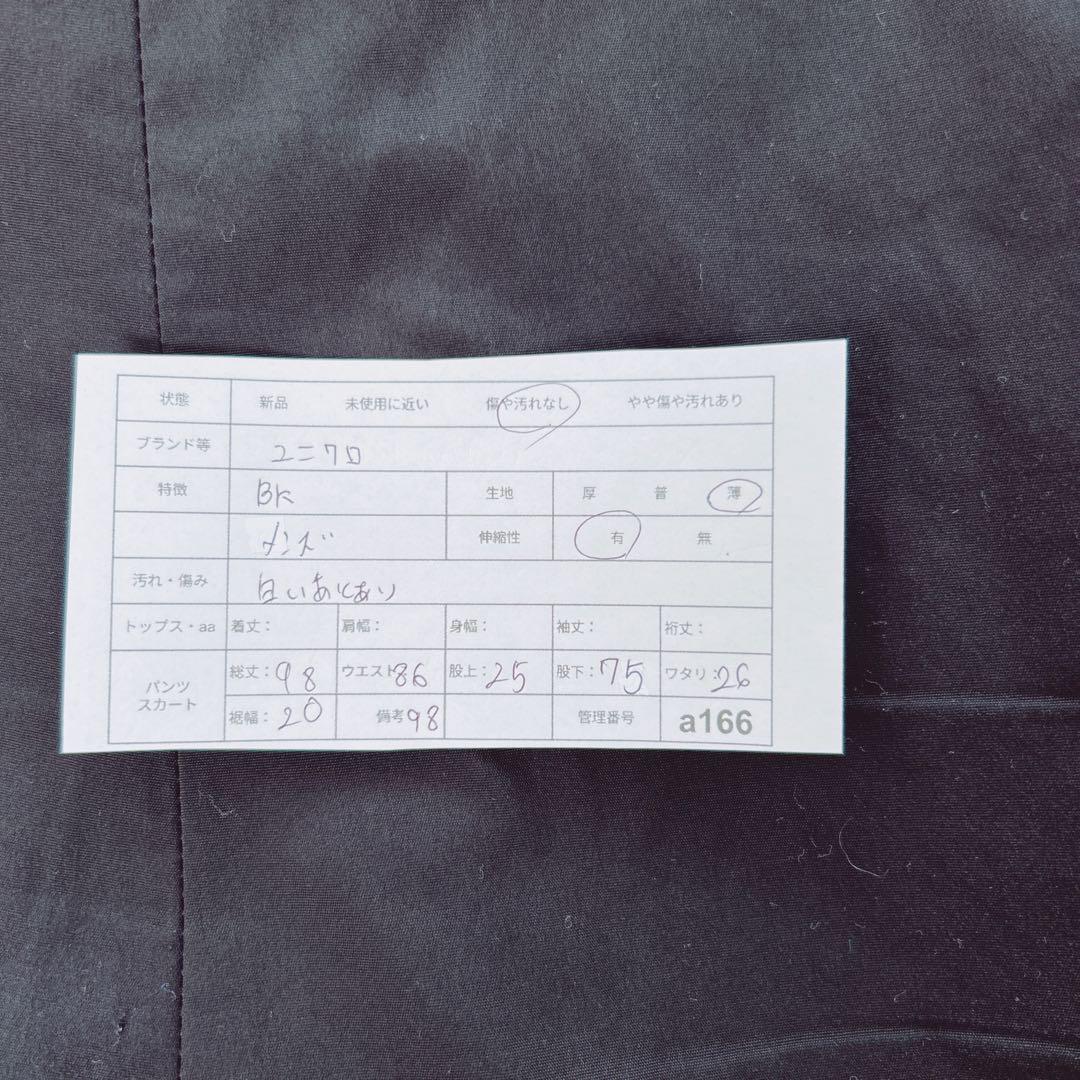 状態 新品 未使用に近い 傷や汚れなし やや傷や汚れあり
ブランド等 ユニクロ
特徴 BK 生地 厚 普 薄
メンズ 伸縮性 有 無
汚れ・傷み 白いあとあり
トップス・aa 着丈: 肩幅: 身幅: 袖丈: 裄丈:
パンツ スカート 総丈:98 ウエスト86 股上:25 股下:75 ワタリ:26
裾幅:20 備考98 管理番号 a166